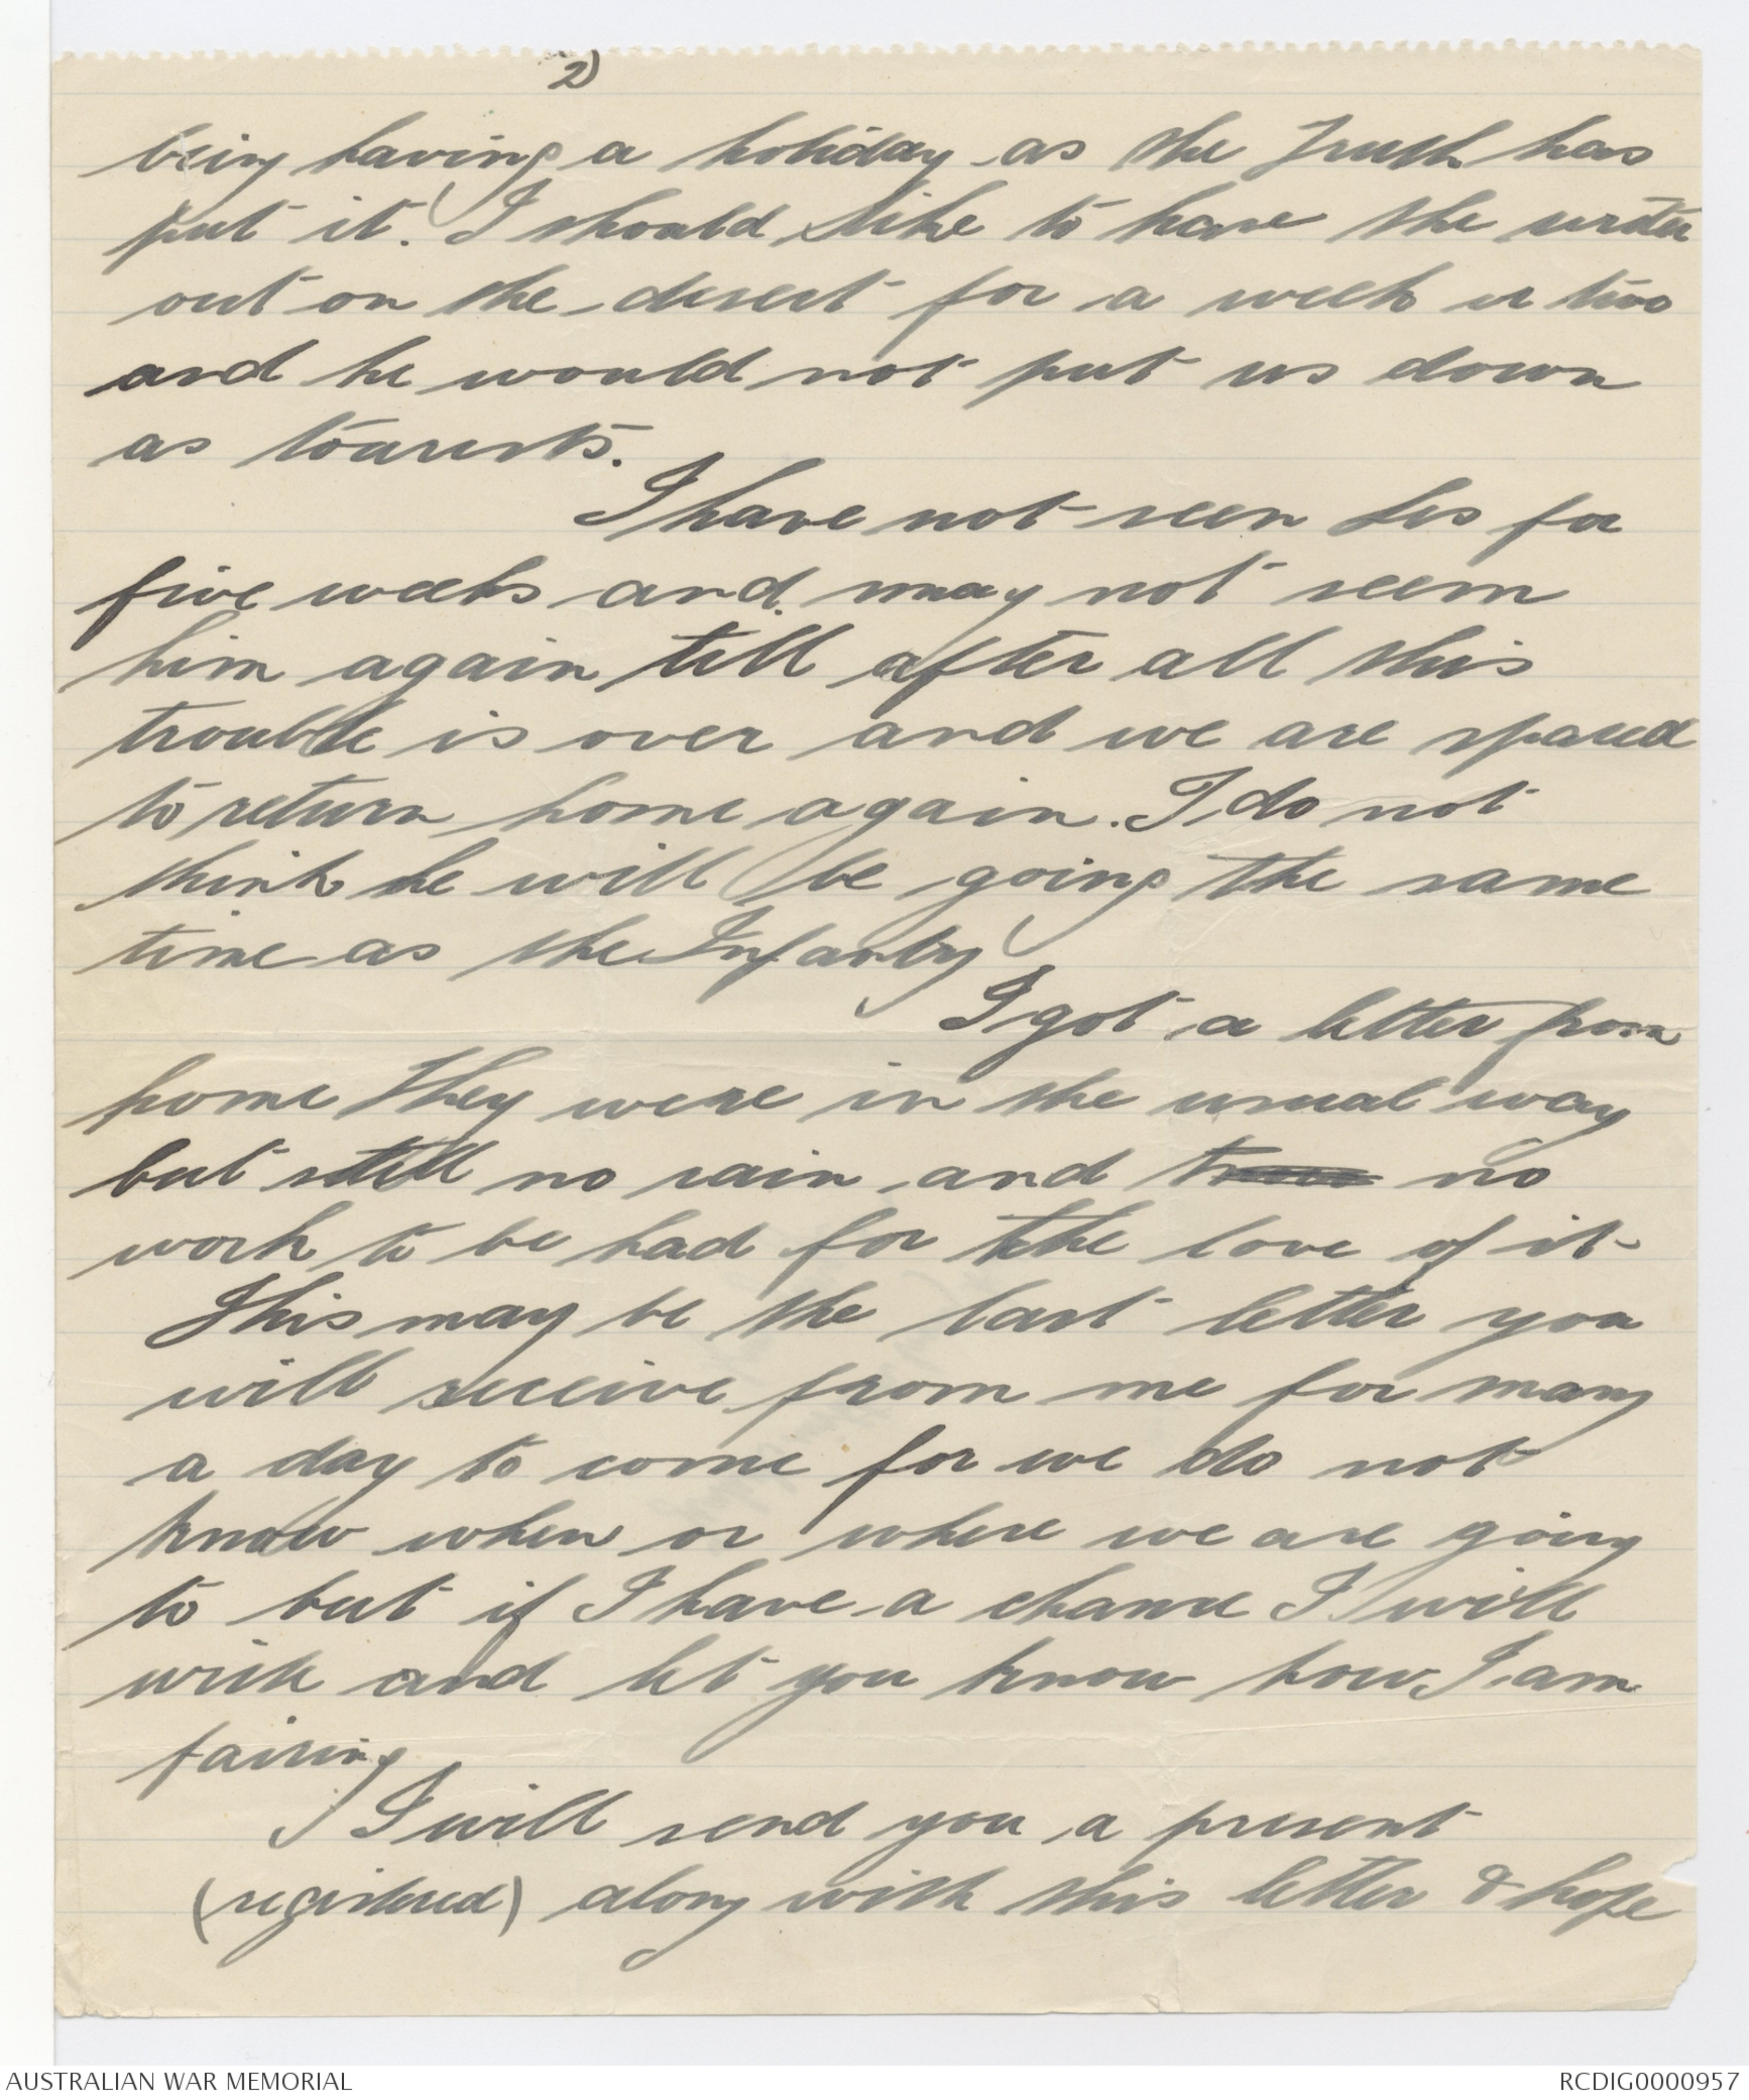 2)
being having a holiday as the Truth has
put it. I should like to have the writer
out on the desert for a week or two
and he would not put us down
as tourists.
I have not seen Les for
five weeks and may not seem
him again till after all this
trouble is over and we are spared
to return home again. I do not
think he will be going the same
time as the Infantry
I got a letter from
home they were in the usual way
but still no rain and no
work to be had for the love of it
This may be the last letter you
will receive from me for many
a day to come for we do not
know when or where we are going
to but if I have a chance I will
write and let you know how I am
fairing
I will send you a present
(registered) along with this letter & hope
AUSTRALIAN WAR MEMORIAL
RCDIG0000957